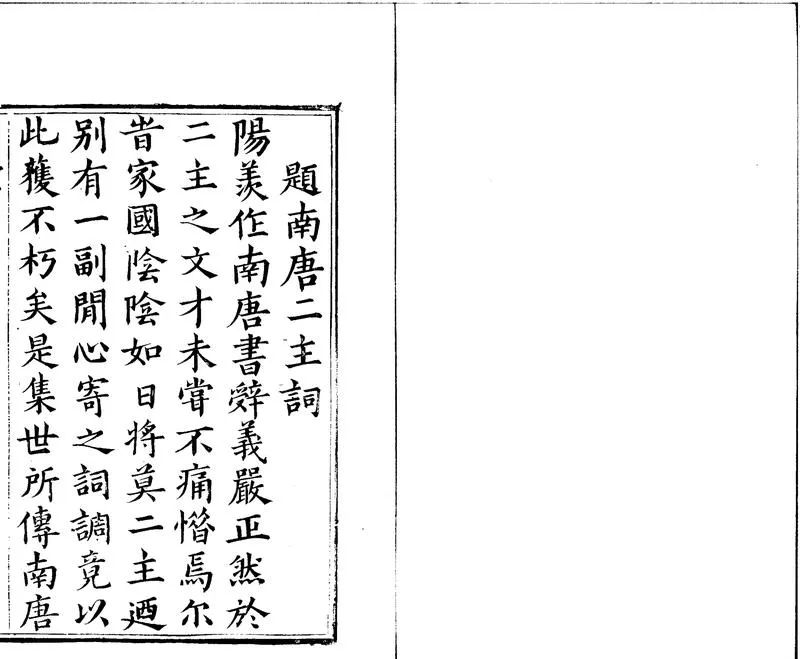 題南唐二主詞
陽羨作南唐書辭義嚴正然於
二主之文才未甞不痛惜焉尔
昔家國陰陰如日將莫二主迺
别有一副閒心寄之詞調竟以
此獲不朽矣是集世所傳南唐